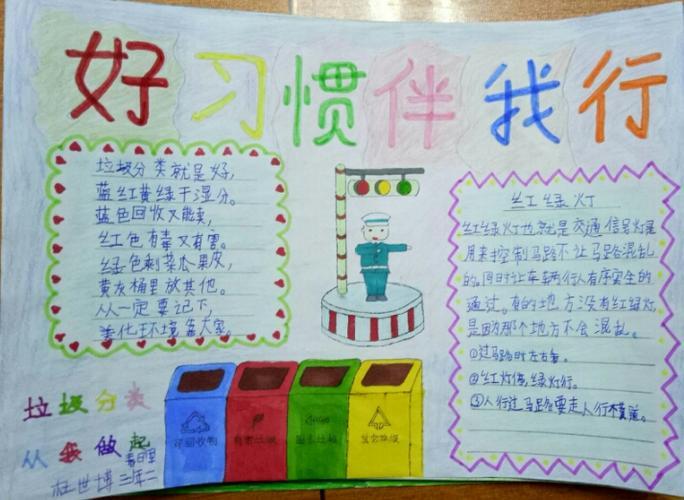 好习惯伴我行
垃圾分类就是好,
蓝红黄绿干湿分。
蓝色回收又能卖,
红色有毒又有害。
绿色剩菜瓜果皮,
黄灰桶里放其他。
从一定要记下,
美化环境靠大家。
红绿灯
红绿灯也就是交通信号灯是
用来控制马路不让马路混乱
的。同时让车辆行人有序安全的
通过。有的地方没有红绿灯
是因那个地方不会混乱。
①过马路时左右看。
②红灯停,绿灯行。
③人行过马路要走人行横道。
可回收物
有害垃圾
厨余垃圾
其它垃圾
垃圾分类
从我做起
三年二
杜世博